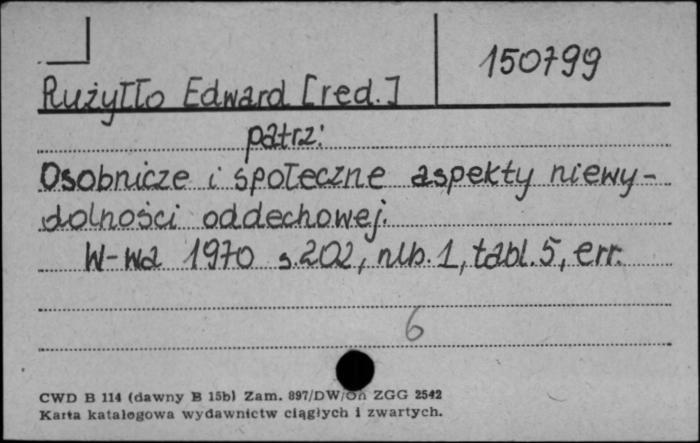 150799
Rużyłło Edward [red.]
patrz:
Osobnicze i społeczne aspekty niewy-
dolności oddechowej.
W-wa 1970 s.202, nlb.1, tabl.5, err.
6
CWD B 114 (dawny B 15b) Zam. 897/DW/Oń ZGG 2542
Karta katalogowa wydawnictw ciągłych i zwartych.